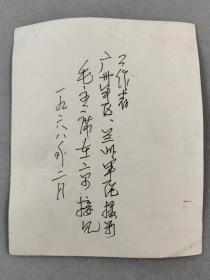 工作者
广州军区、兰州军区
毛主席在京接见
一九六八年二月